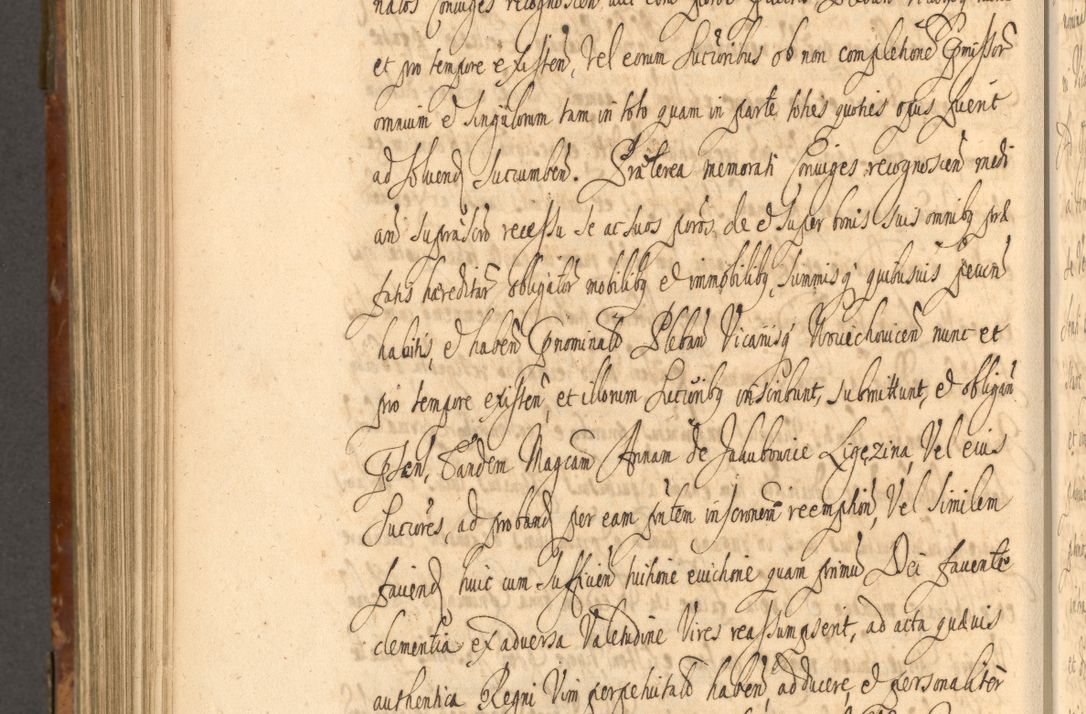 et pro tempore existen, Vel eorum Sucrōribus ob non completionē Pmissor
omnium et Singulorum tam in toto quam in parte toties quoties opus fuerit
ad Solvend Sucumben. Præterea memorati Conuiges recognoscen medi
an̄ supraScrō recessu Se ac Suos Sucrōs de et Super bonis Suis omnibq præ
fatis hæreditar̄ obligator̄ mobilibq et immobilibq, Summisq quibusuis pecun̄
habitis, et haben Pnominato Pleban Vicariisq Nouechouicen nunc et
pro tempore existen, et illorum Sucrōribq inscribunt, submittunt, et obligan̄
Pſen, Tandem Magcam Annam de Jakubouice Ligęzina, Vel eius
Sucrores, ad proband per eam pn̄tem inscrōnem reemption, Vel Similem
faciend huic cum Sufficien tuitione evictione quam primū Dei favente
clementia ex adversa Valetudine Vires reassumpserit, ad acta quævis
authentica Regni Vim perpetuitatis haben adducere, et personaliter